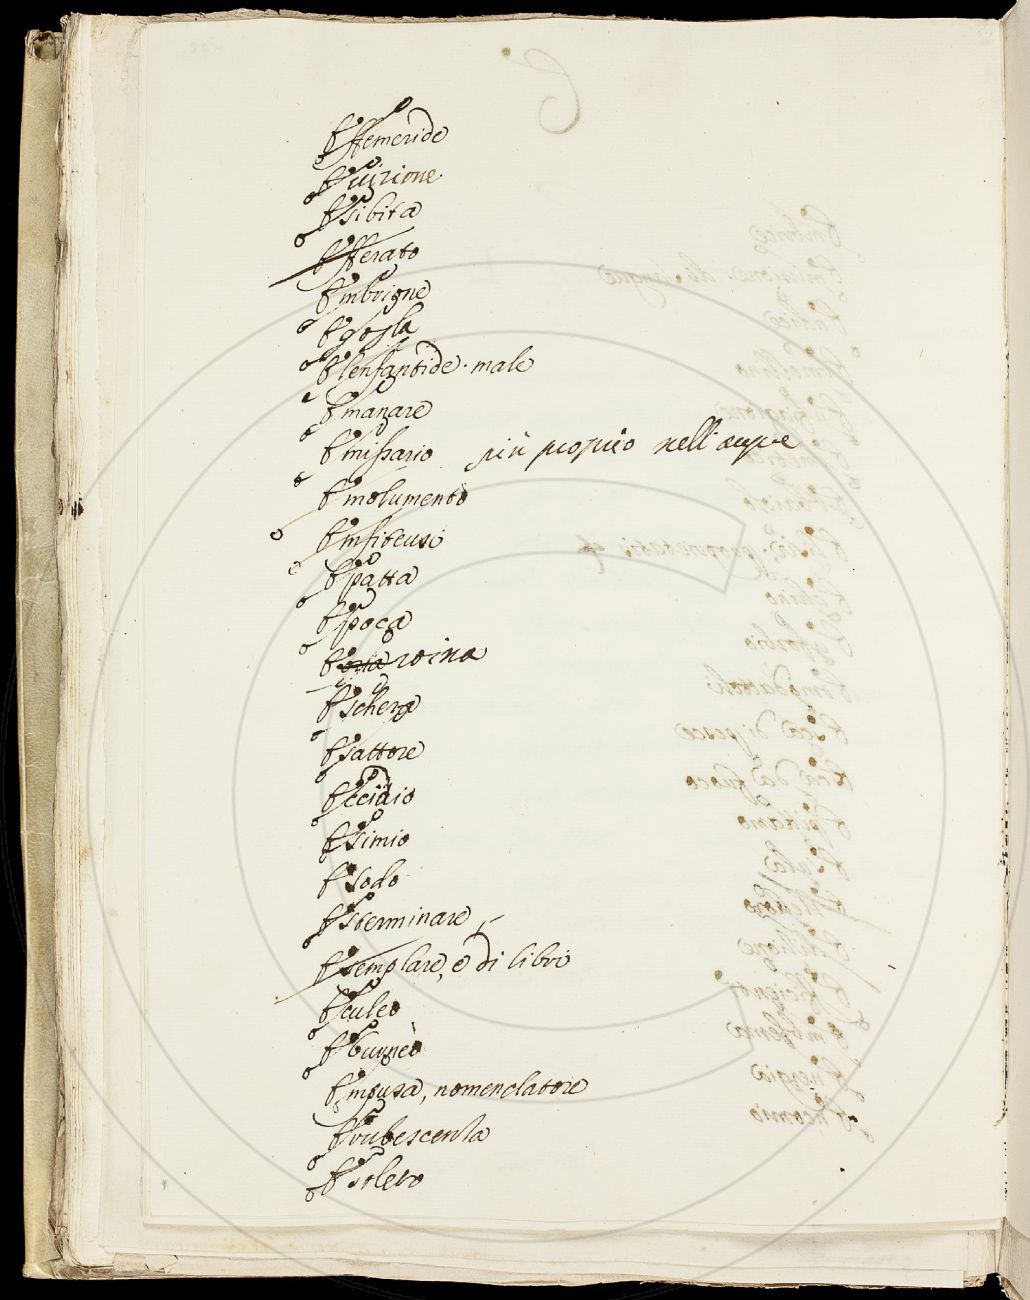 E
Effemeride
Evizione
Esibita
Efferato
Embrione
Elenfantide. male
Emanare
Emissario più proprio nell'acque
Emolumento
Emfiteusi
Epatta
Epoca
Eroina
Eschera
Esattore
Eccidio
Esimio
Esodo
Esterminare
Esemplare, e di libri
Eculeo
Eburneo
Empusa, nomenclatore
Erubescenza
Esoleto